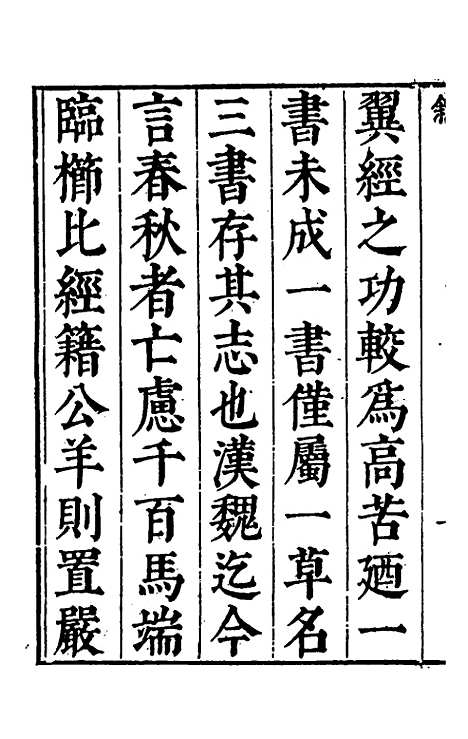 翼經之功較爲高苦廼一
書未成一書僅屬一草名
三書存其志也漢魏迄今
言春秋者亡慮千百馬端
臨櫛比經籍公羊則置嚴